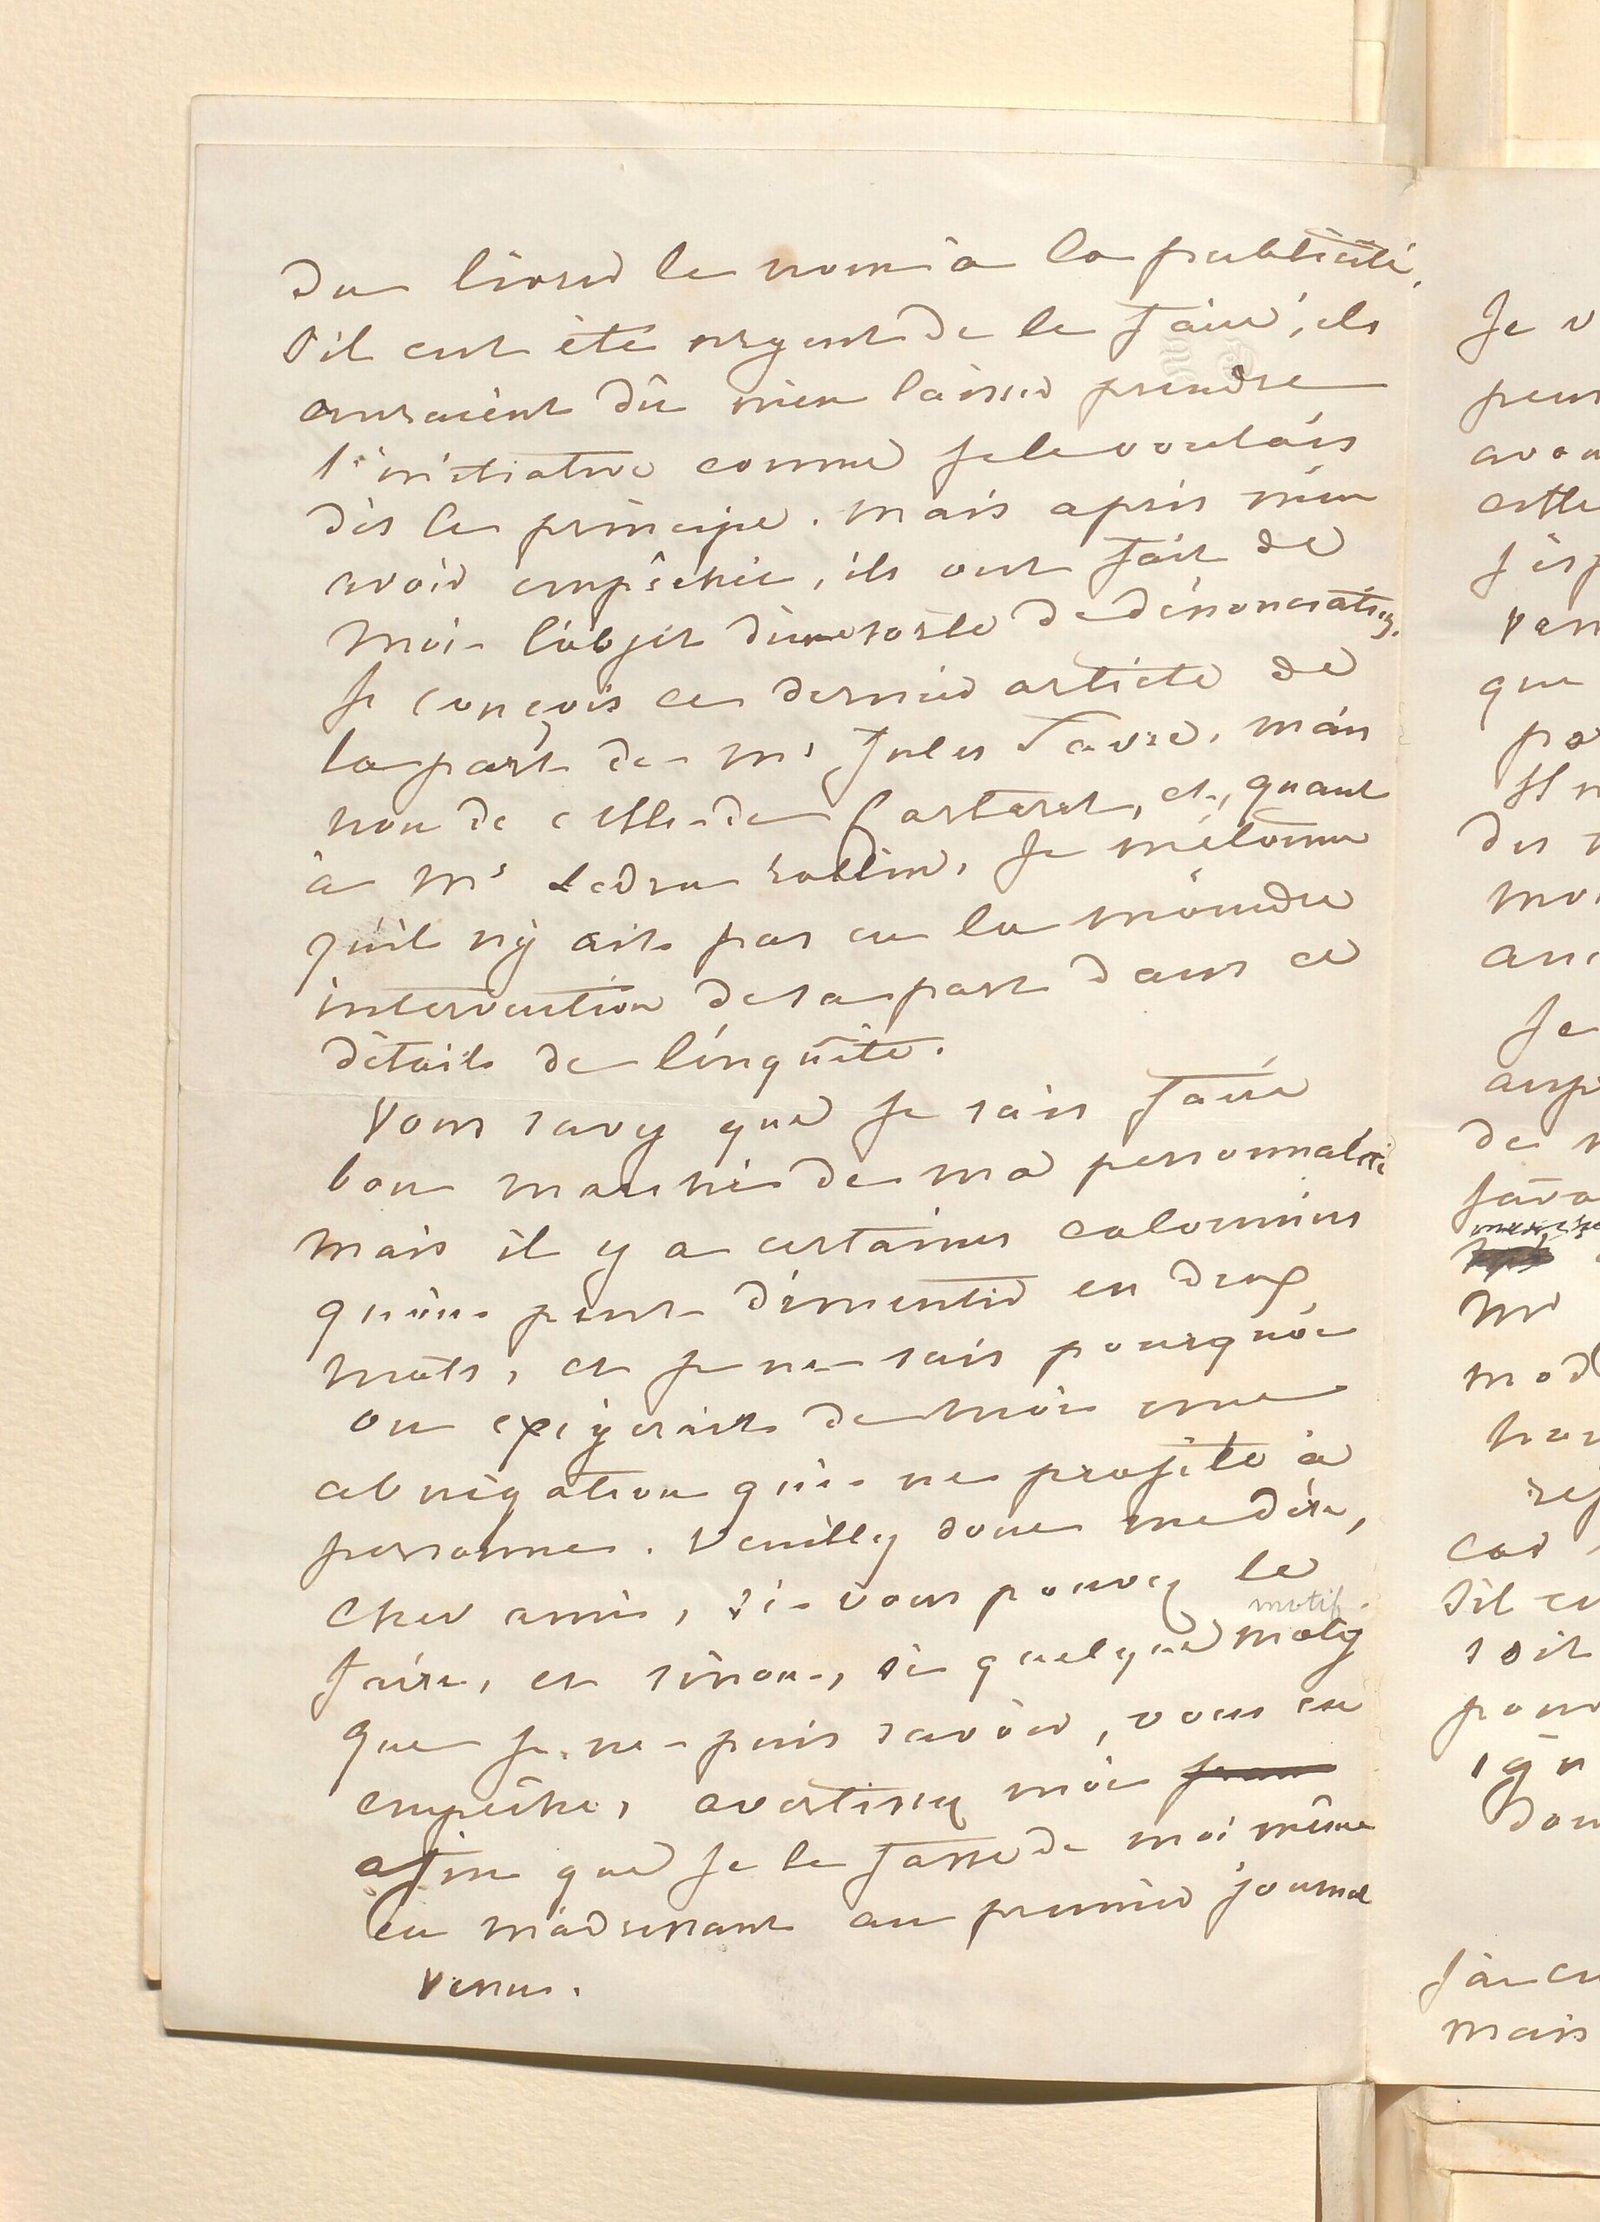 d'en livrer le nom à la publicité.
S'il eut été urgent de le faire, ils
auraient dû m'en laisser prendre
l'initiative comme je le voulais
dès le principe. Mais après m'en
avoir empêchée, ils ont fait de
moi l'objet d'une sorte de dénonciation.
Je conçois ce dernier article de
la part de Mr Jules Favre, mais
non de celle de Carteret, et, quant
à Mr Ledru rollin, je m'étonne
qu'il n'y ait pas eu la moindre
intervention de sa part dans ce
détail de l'enquête.
Vous savez que je sais faire
bon marché de ma personnalité
mais il y a certaines calomnies
qu'on peut démentir en deux
mots, et je ne sais pourquoi
on exigerait de moi une
abnégation qui ne profite à
personne. Veuillez donc me dire,
cher ami, si vous pouvez le
motif.
faire, et sinon, si quelque motif
que je ne puis savoir, vous en
empêche, avertissez moi
afin que je le fasse de moi même
en m'adressant au premier journal
venu.
Je v
peur
avou
cette
j'esp
que
po
Il n
des
moi
Je
de
car
S'il
soit
pour
J'ai
mais